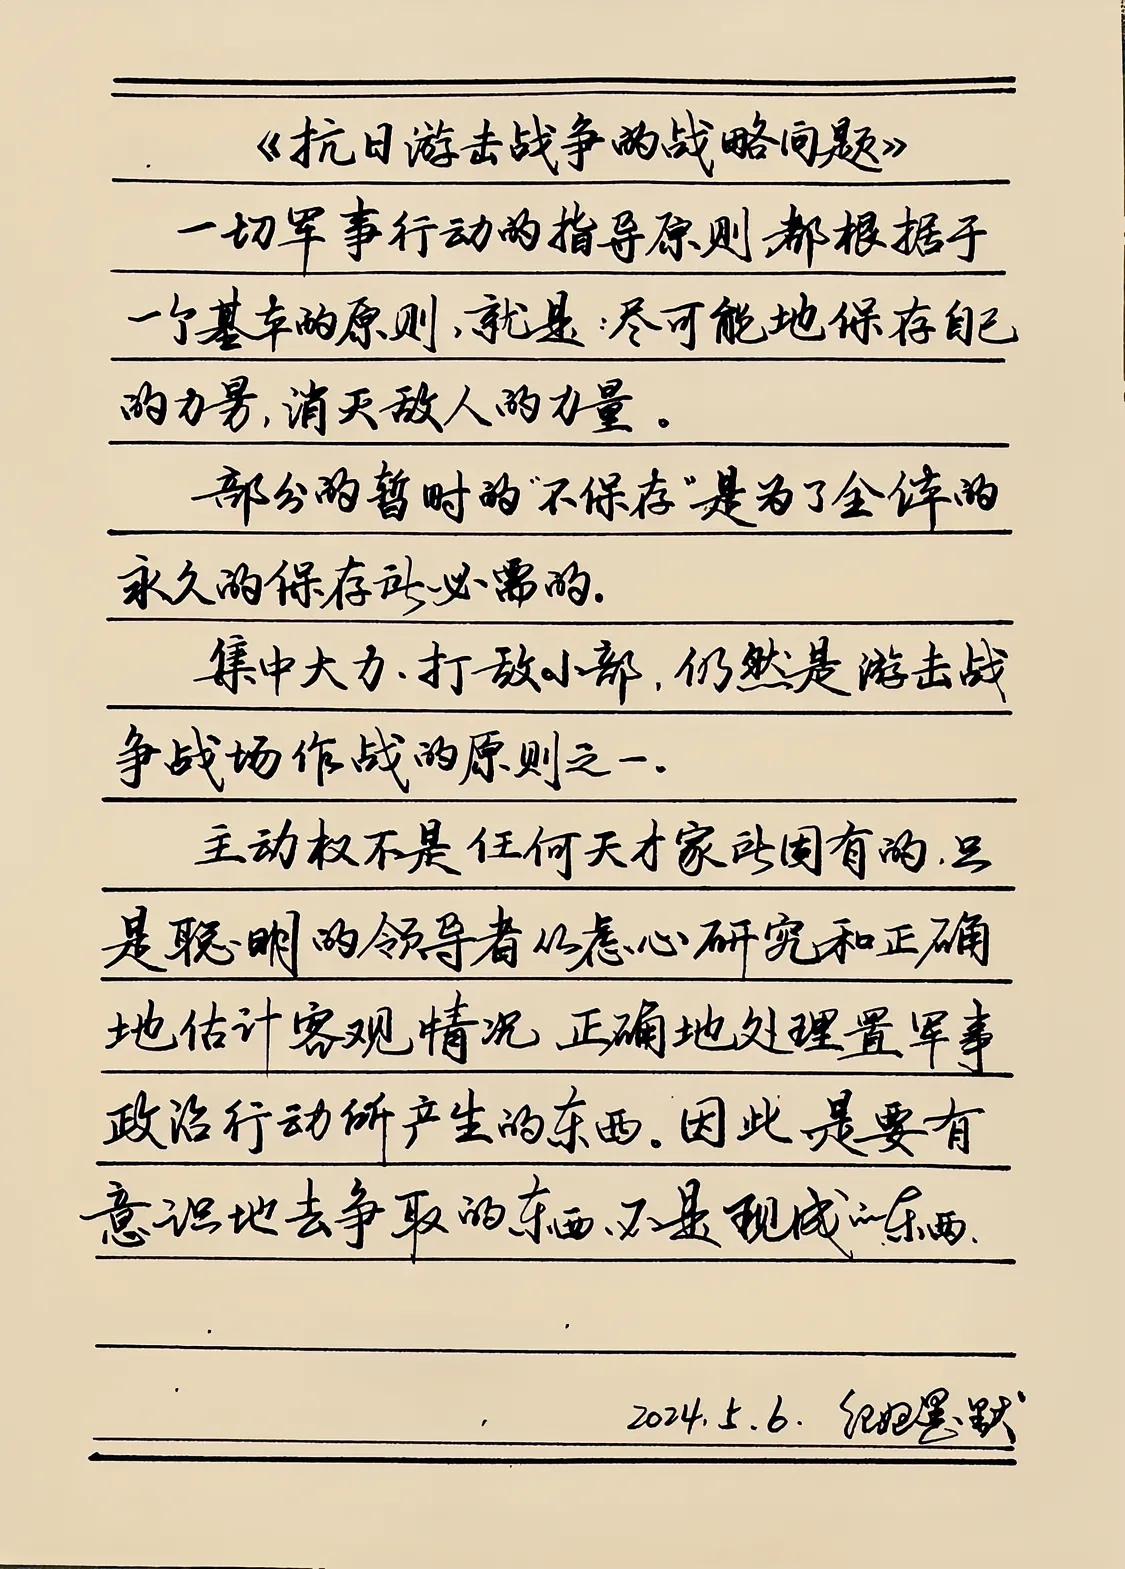 《抗日游击战争的战略问题》
一切军事行动的指导原则,都根据于
一个基本的原则,就是:尽可能地保存自己
的力量,消灭敌人的力量。
部分的暂时的"不保存"是为了全体的
永久的保存所必需的.
集中大力、打敌小部,仍然是游击战
争战场作战的原则之一.
主动权不是任何天才家所固有的,只
是聪明的领导者从虚心研究和正确
地估计客观情况,正确地处理置军事
政治行动所产生的东西。因此是要有
意识地去争取的东西、不是现成的东西.
2024.5.6.